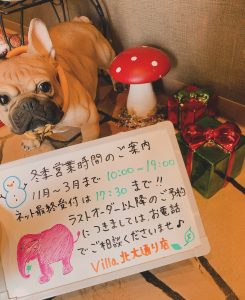 冬季営業時間のご案内
11月〜3月まで 10:00〜19:00
ネット最終受付は 17:30まで!!
ラストオーダー以降のご予約
につきましてはお電話
でご相談くださいませ♪
Villa 北大通り店